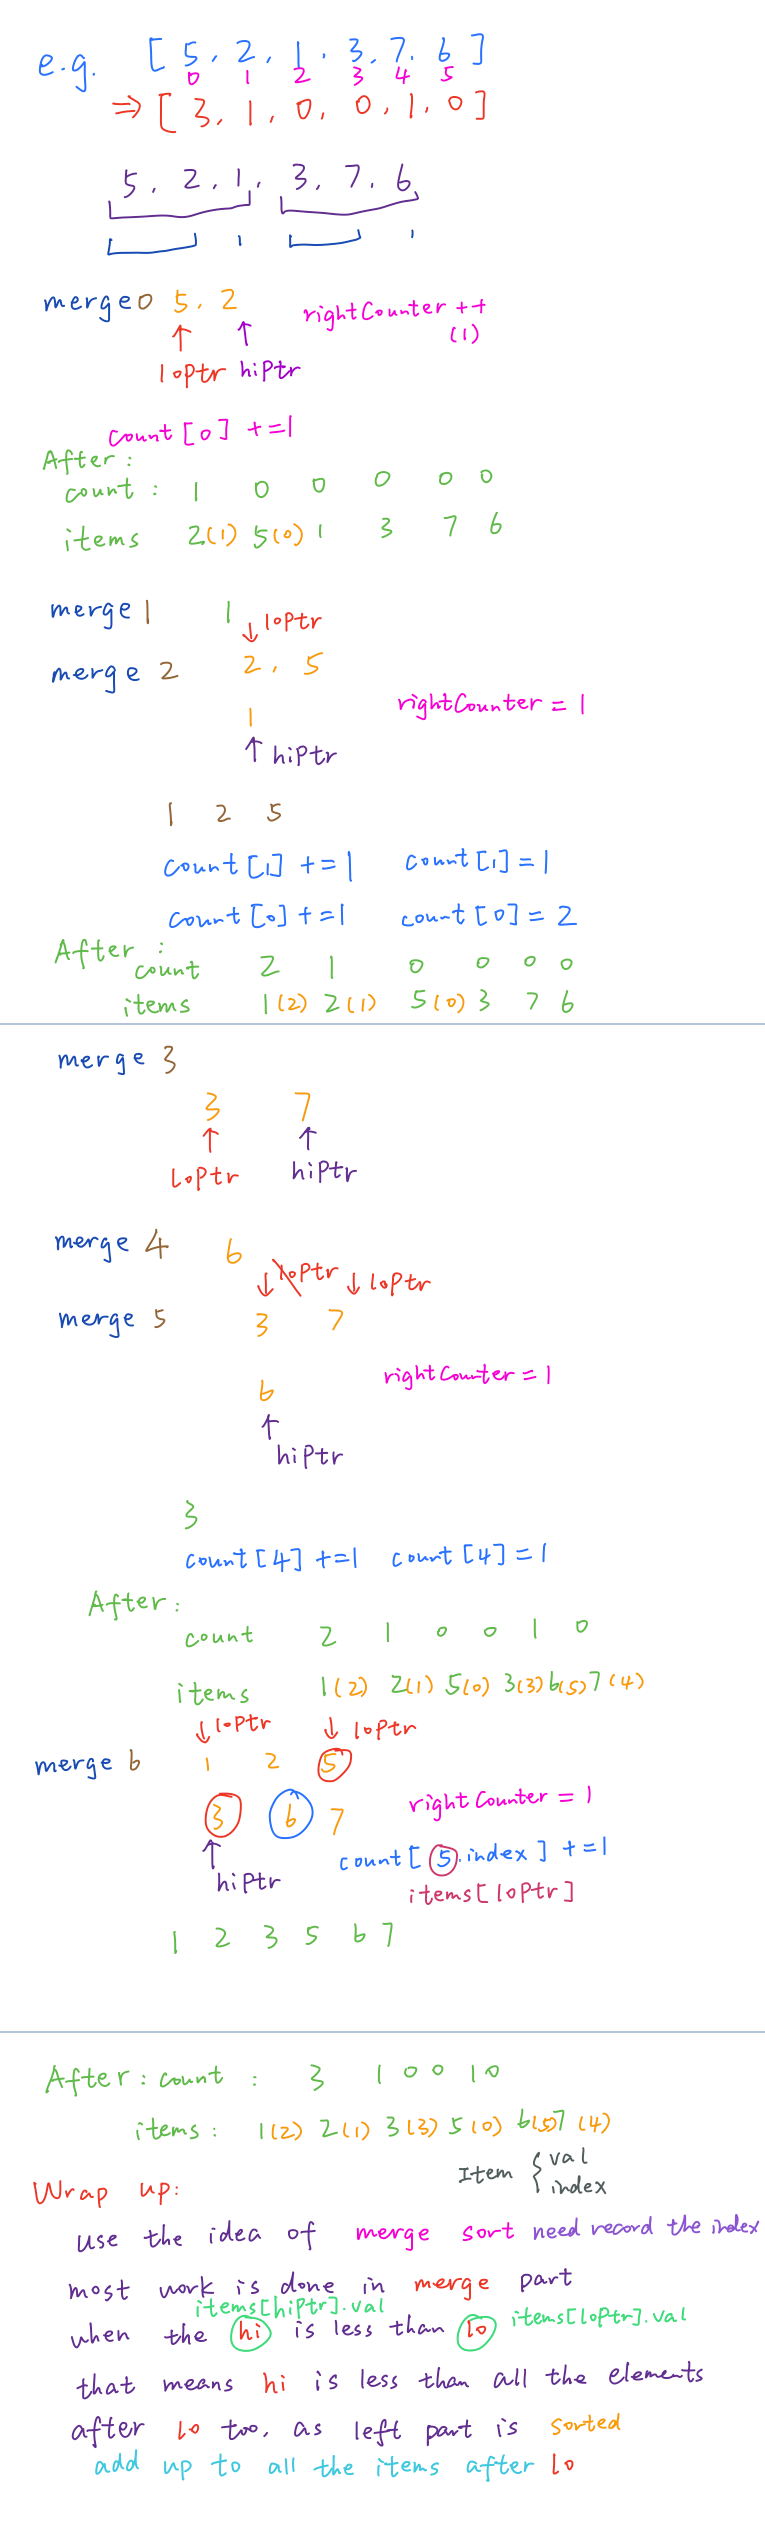 e.g. [ 5, 2, 1, 3, 7, 6 ]
0 1 2 3 4 5
⇒ [ 3, 1, 0, 0, 1, 0 ]
5, 2, 1, 3, 7, 6
merge 0 5, 2 rightCounter ++
(1)
loPtr hiPtr
count [0] +=1
After:
count : 1 0 0 0 0 0
items 2(1) 5(0) 1 3 7 6
merge 1 1
loPtr
merge 2 2, 5
rightCounter = 1
1
hiPtr
1 2 5
count [1] +=1 count [1] = 1
count [0] +=1 count [0] = 2
After :
count 2 1 0 0 0 0
items 1(2) 2(1) 5(0) 3 7 6
merge 3
3 7
loPtr hiPtr
merge 4 6
loPtr loPtr
merge 5 3 7
rightCounter = 1
6
hiPtr
3
count [4] +=1 count [4] = 1
After:
count 2 1 0 0 1 0
items 1(2) 2(1) 5(0) 3(3) 6(5) 7(4)
loPtr loPtr
merge 6 1 2 5
rightCounter = 1
3 6 7
count [ 5.index ] +=1
hiPtr
items [loPtr]
1 2 3 5 6 7
After: count : 3 1 0 0 1 0
items: 1(2) 2(1) 3(3) 5(0) 6(5) 7(4)
Item { val
index
Wrap up:
use the idea of merge sort need record the index
most work is done in merge part
items[hiPtr].val
when the hi is less than lo items[loPtr].val
that means hi is less than all the elements
after lo too, as left part is sorted
add up to all the items after lo